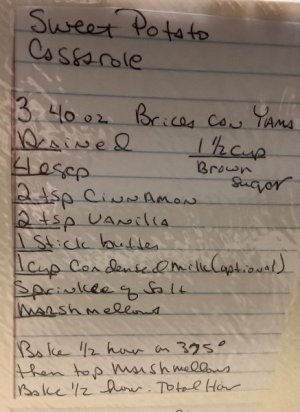 Sweet Potato
Casserole
3 40 oz Brices Can Yams
Drained
1 1/2 cup
Brown
Sugar
4 eggs
2 tsp Cinnamon
2 tsp Vanilla
1 Stick butter
1 Cup Condensed milk (optional)
Sprinkle of Salt
Marshmellows
Bake 1/2 hour on 395°
then top Marshmellows
Bake 1/2 hour. Total Hour